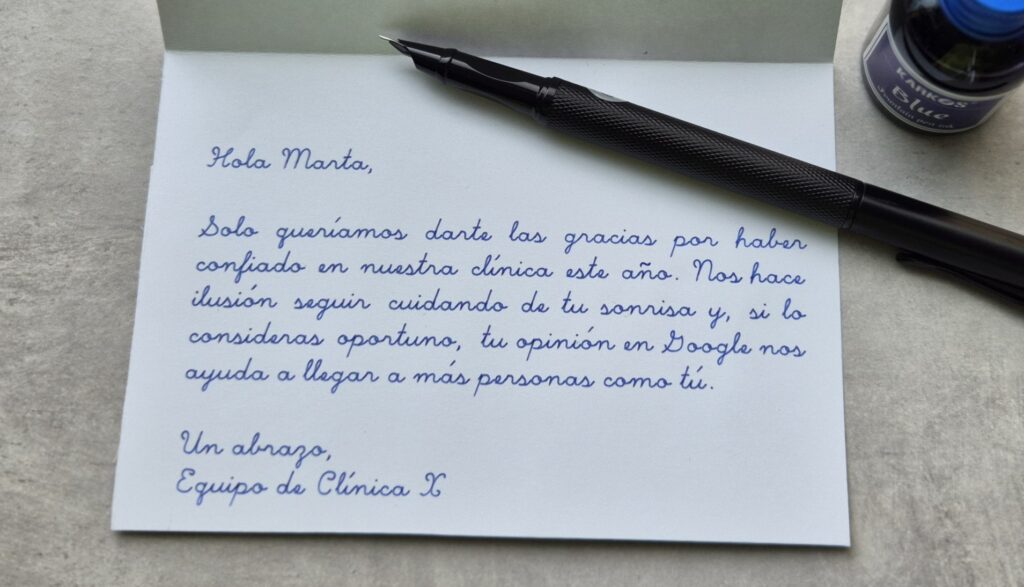 Hola Marta,
Solo queríamos darte las gracias por haber
confiado en nuestra clínica este año. Nos hace
ilusión seguir cuidando de tu sonrisa y, si lo
consideras oportuno, tu opinión en Google nos
ayuda a llegar a más personas como tú.
Un abrazo,
Equipo de Clínica X
KARKOS
Blue
Fountain pen ink